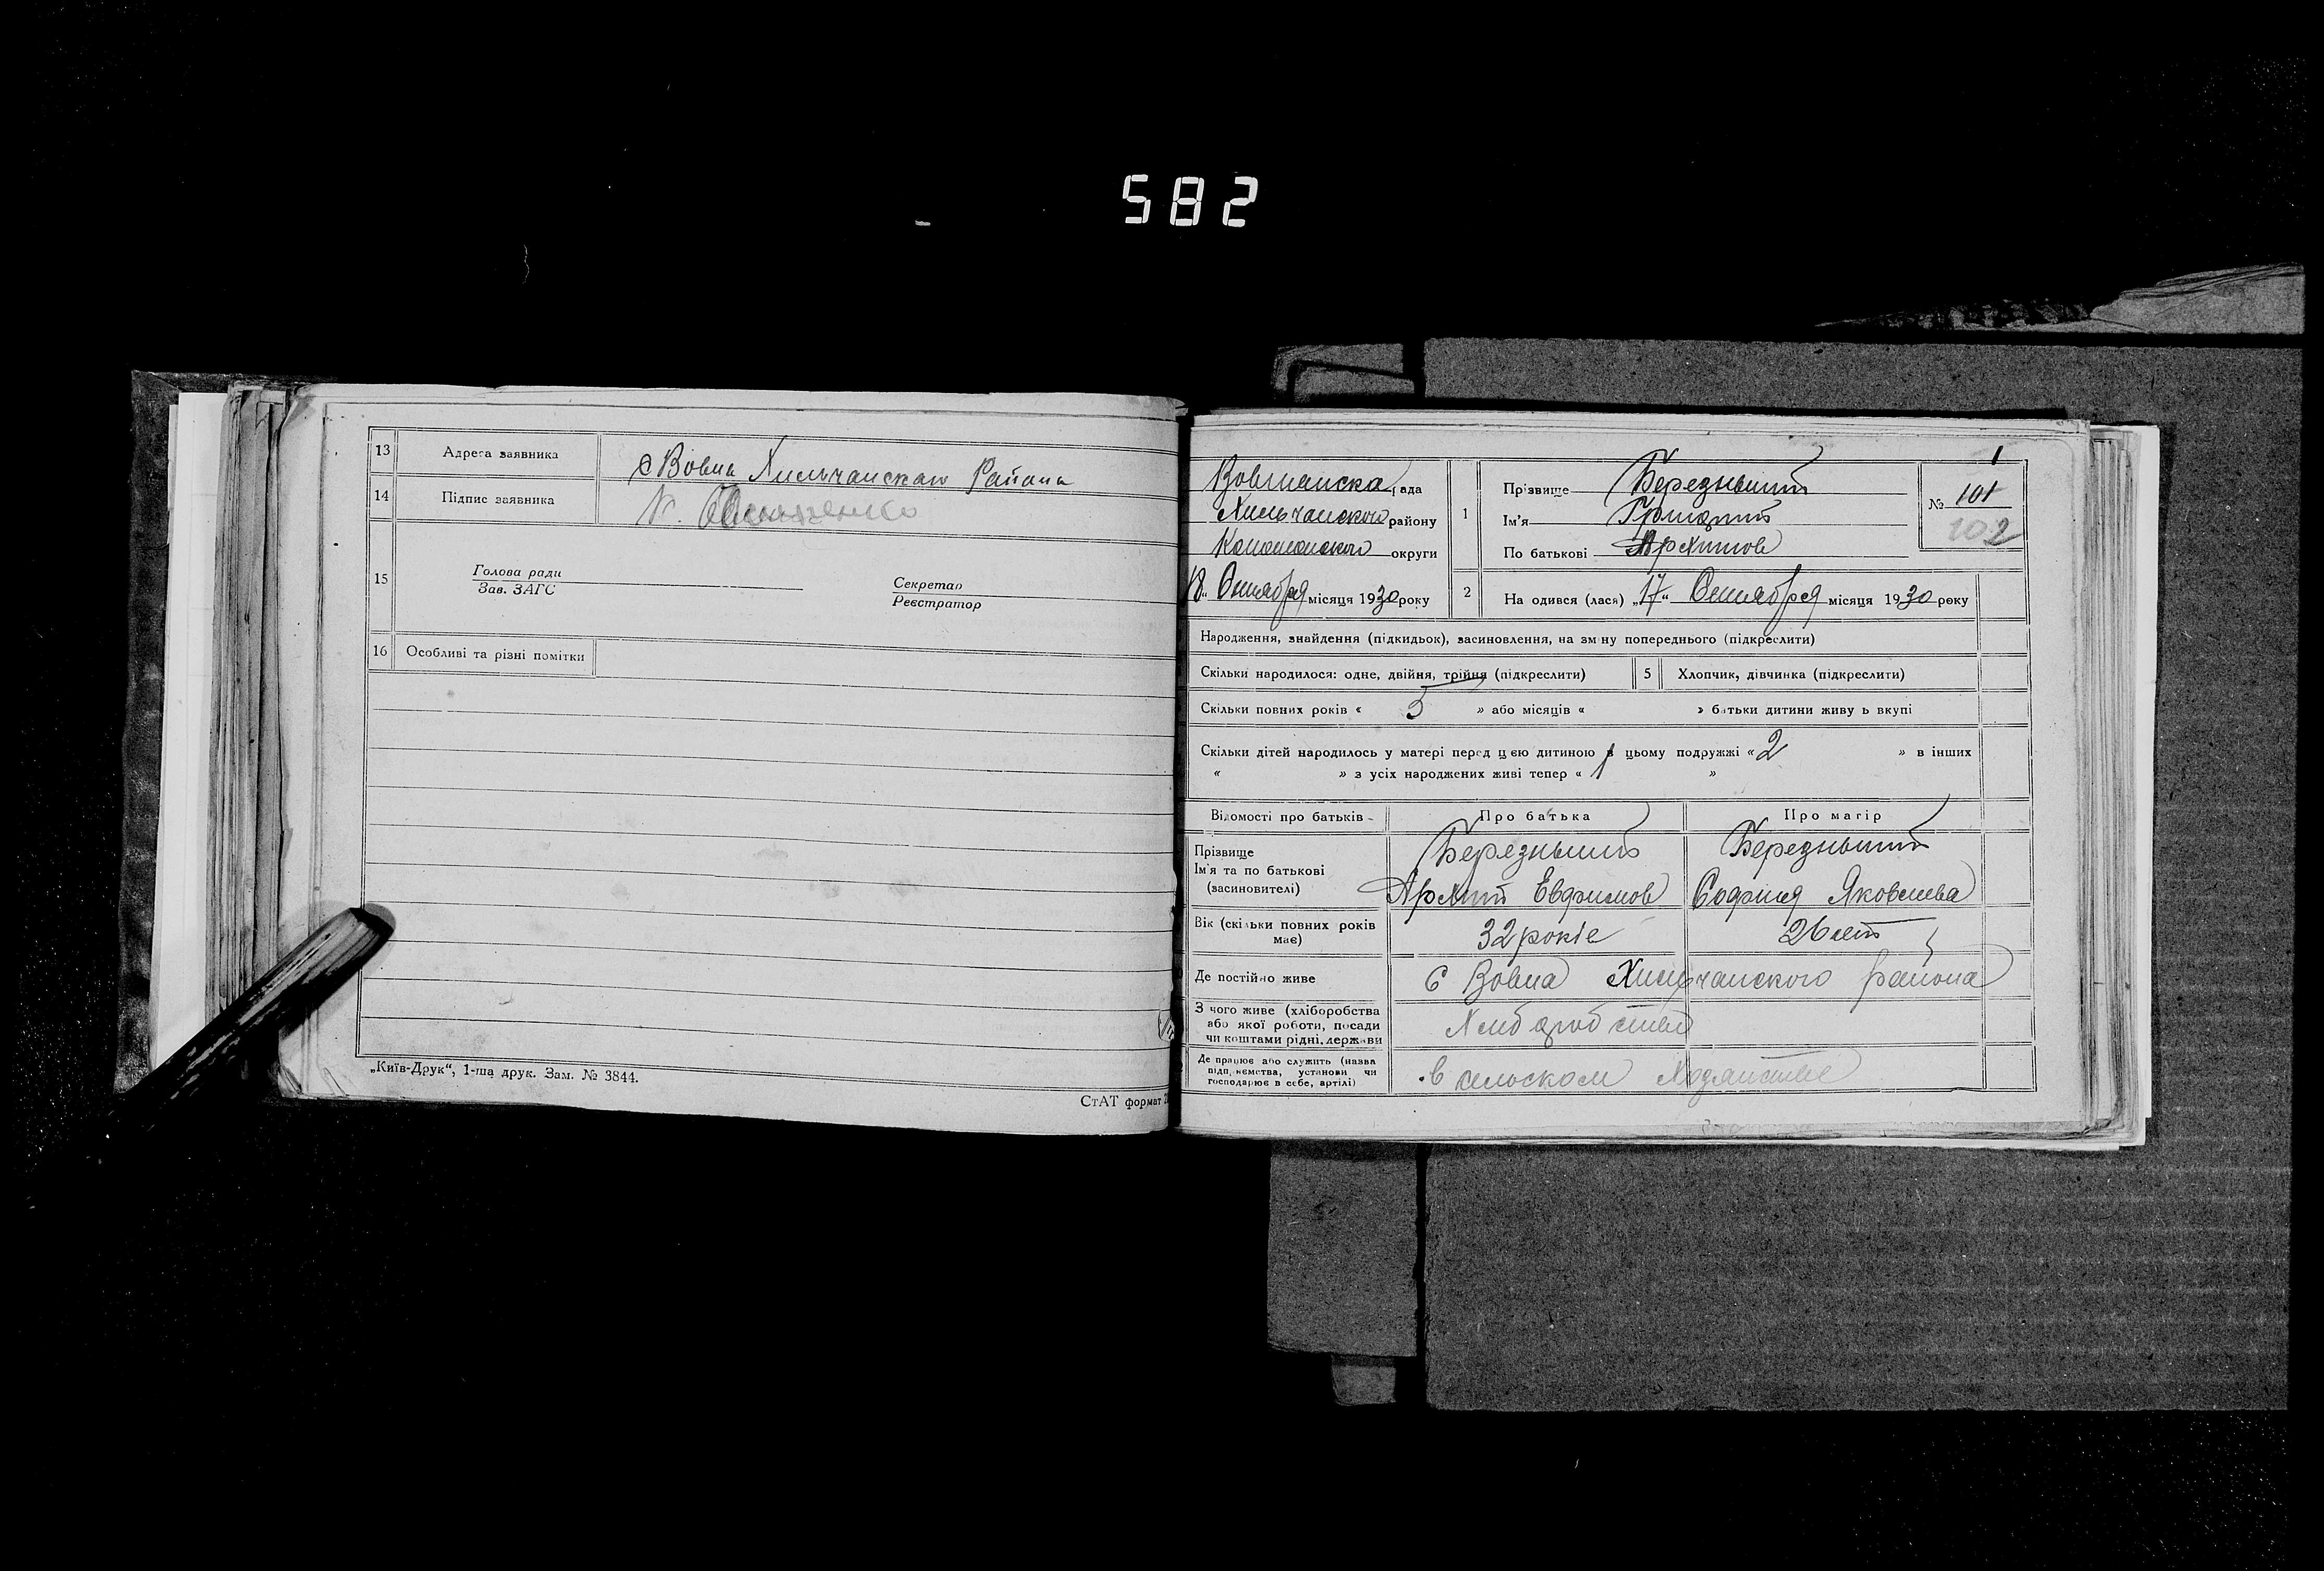 582
13 Адреса заявника с Вовна Хильчанскаго Района
14 Підпис заявника
15 Голова ради
Зав. ЗАГС
Секретар
Реєстратор
16 Особливі та різні помітки
„Київ-Друк“, 1-ша друк. Зам. № 3844.
СтАТ формат
Вовнянска рада
Хильчанского району
округи
18 Октября місяця 1930 року
1 Прізвище
Ім'я
По батькові Архипов
№ 101
102
2 На одився (лася) „17“ Октября місяця 1930 року
Народження, знайдення (підкидьок), засиновлення, на зміну попереднього (підкреслити)
Скільки народилося: одне, двійня, трійня (підкреслити)
5 Хлопчик, дівчинка (підкреслити)
Скільки повних років « 5 » або місяців « » батьки дитини живуть вкупі
Скільки дітей народилось у матері перед цією дитиною в цьому подружжі « 2 » в інших
« » з усіх народжених живі тепер « 1 »
Відомості про батьків
Про батька
Про матір
Прізвище
Ім'я та по батькові
(засновителі)
Архип Евфимов
София Яковлева
Вік (скільки повних років має)
32 років
26 лет
Де постійно живе
с Вовна Хильчанского района
З чого живе (хліборобства
або якої роботи, посади
чи коштами рідні, держави
Де працює або служить (назва
підприємства, установи чи
господарює в себе, артілі)
в сельском